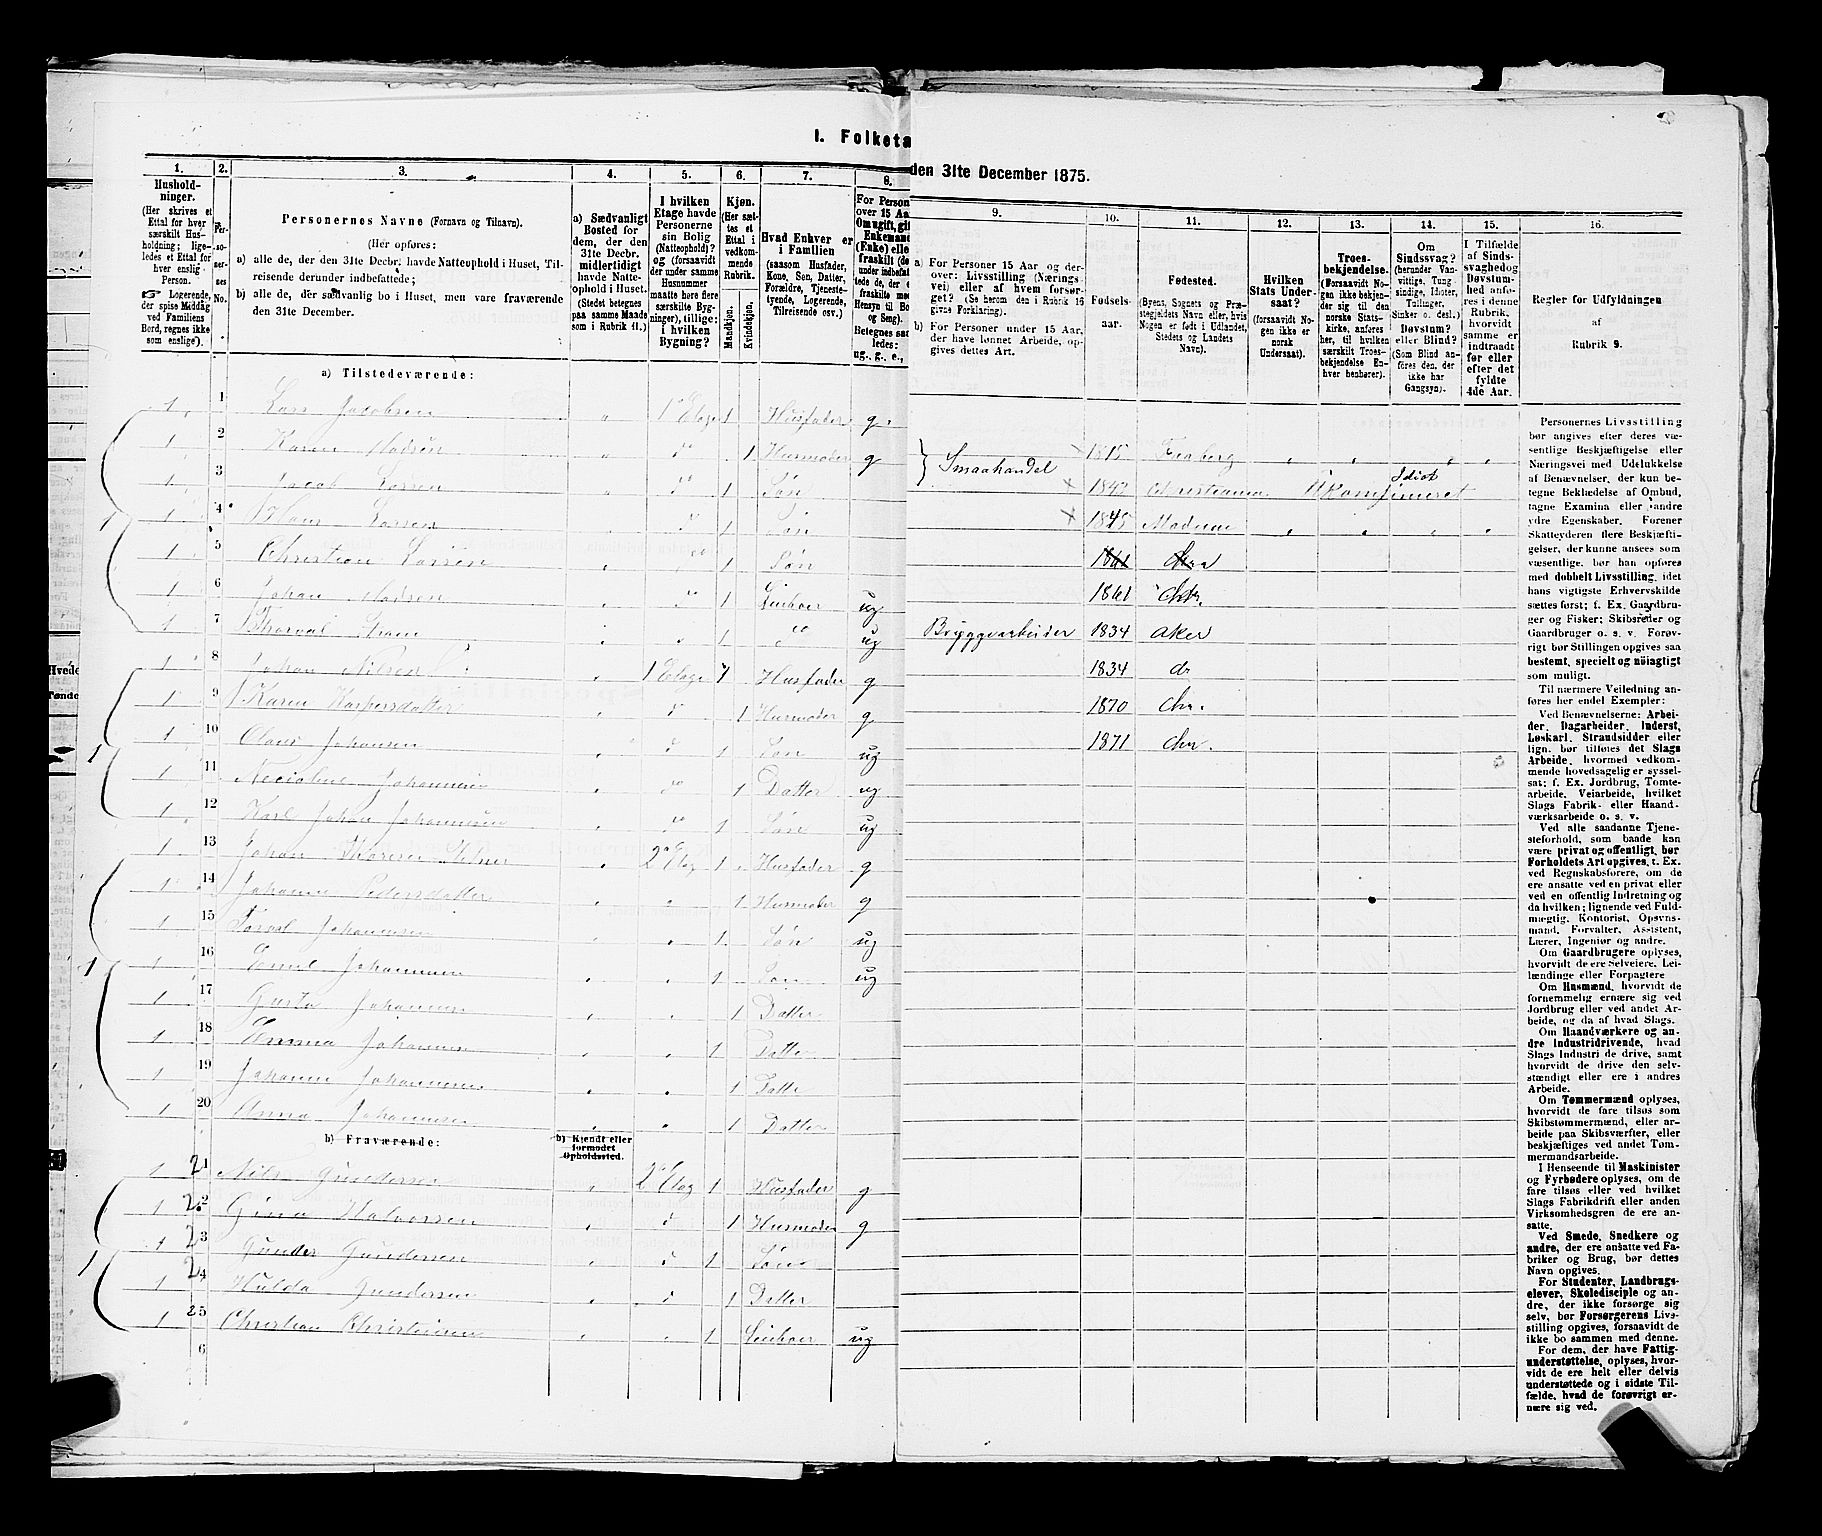 I. Folketæ
den 31te December 1875.
1.
2.
3.
4.
5.
6.
7.
8.
Hushold-
ninger.
(Her skrives et
Ettal for hver
særskilt Hus-
holdning; lige-
ledes et Ettal for
hver enslig
Person.
Logerende,
der spise Middag
ved Familiens
Bord, regnes ikke
som enslige).
Per-
so-
ner-
nes
No.
Personernes Navne (Fornavn og Tilnavn).
(Her opføres:
a) alle de, der den 31te Decbr. havde Natteophold i Huset, Til-
reisende derunder indbefattede;
b) alle de, der sædvanlig bo i Huset, men vare fraværende
den 31te December.
a) Sædvanligt
Bosted for
dem, der den
31te Decbr.
midlertidigt
havde Natte-
ophold i Huset.
(Stedet betegnes
paa samme Maade
som i Rubrik 11.)
I hvilken
Etage havde
Personerne
sin Bolig
(Natteophold)?
og (forsaavidt
der under samme
Husnummer
maatte høre flere
særskilte Byg-
ninger), tillige:
i hvilken
Bygning?
Kjøn.
(Her sæt-
tes et
Ettal i
vedkom-
mende
Rubrik.
Mandkjøn.
Kvindekjøn.
Hvad Enhver er
i Familien
(saasom Husfader,
Kone, Søn, Datter,
Forældre, Tjeneste-
tyende, Logerende,
Tilreisende osv.)
For Person
over 15 Aa
Om ugift, gif
Enkemand
(Enke) elle
fraskilt (de
under indbefat
tede de, der e
fraskilte me
Hensyn til Bo
og Seng).
Betegnes saa
ledes:
ug., g., e.,
a) Tilstedeværende:
1 1 Lars Jacobsen " 1ste Etage 1 Husfader g.
1 2 Karen Madsen " do 1 Husmoder g
1 3 Jacob Larsen " do 1 Søn
1 4 Hans Larsen " do 1 Søn
1 5 Christian Larsen " do 1 Søn
1 6 Johan Madsen " do 1 Leiboer ug
1 7 Thorval " " 1 do ug
1 8 Johan Nilsen " 1 Etage 1 Husfader g
1 9 Karen Kaspersdatter " d 1 Husmoder g
1 10 Olaus Johansen " d 1 Søn ug
1 11 Johannesen " do 1 Datter ug
1 12 Karl Johan Johannesen " do 1 Søn ug
1 13 Johan Thoresen " 2den Etag 1 Husfader g
1 14 Johanne Pedersdatter " " 1 Husmoder g
1 15 Torval Johannesen " " 1 Søn ug
1 16 Emil Johannesen " " 1 Søn ug
1 17 Gusta Johannesen " " 1 Datter
1 18 Emma Johannesen " " 1 Datter
1 19 Johanne Johannesen " " 1 Datte
1 20 Anna Johannesen " " 1 Datter
b) Fraværende:
b) Kjendt eller
formodet
Opholdssted.
1 21 Nils Gundersen " 2den Etag 1 Husfader g
1 22 Gina Halvorsen " d 1 Husmoder g
1 23 Gunder Gundersen " d 1 Søn
1 24 Hulda Gundersen " d 1 Datter
1 25 Christian Christensen " " 1 Leiboer ug
6
9.
10.
11.
12.
13.
14.
15.
16.
a) For Personer 15 Aar og der-
over: Livsstilling (Nærings-
vei) eller af hvem forsør-
get? (Se herom den i Rubrik 16
givne Forklaring).
b) For Personer under 15 Aar,
der have lønnet Arbeide, op-
gives dettes Art.
Fødsels-
aar.
Fødested.
(Byens, Sognets og Præ-
stegjeldets Navn eller, hvis
Nogen er født i Udlandet,
Stedets og Landets
Navn).
Hvilken
Stats Under-
saat?
(forsaavidt No-
gen ikke er
norsk
Undersaat).
Troes-
bekjendelse.
(Forsaavidt No-
gen ikke bekjen-
der sig til den
norske Stats-
kirke, anføres
her, til hvilken
særskilt Troes-
bekjendelse En-
hver henhører).
Om
Sindssvag?
(herunder Van-
vittige, Tung-
sindige, Idioter,
Tullinger,
Sinker o. desl.)
Døvstum?
eller Blind?
(Som Blind an-
føres den, der
ikke har
Gangsyn).
I Tilfælde
af Sinds-
svaghed og
Døvstum-
hed anfø-
res i denne
Rubrik,
hvorvidt
samme er
indtraadt
før eller
efter det
fyldte
4de Aar.
Regler for Udfyldningen
af
Rubrik 9.
Smaahandel 1815
1843 Christiania Ukonfirmeret Idiot
1845
1861 Chra
1861 Chr.
Bryggearbeider 1834 Aker
1834 do
1870 Chr.
1871 Chr.
Personernes Livsstilling
bør angives efter deres væ-
sentlige Beskjæftigelse eller
Næringsvei med Udelukkelse
af Benævnelser, der kun be-
tegne Beklædelse af Ombud,
tagne Examina eller andre
ydre Egenskaber. Forener
Skatteyderen flere Beskjæfti-
gelser, der kunne ansees som
væsentlige, bør han opføres
med dobbelt Livsstilling, idet
hans vigtigste Erhvervskilde
sættes først; f. Ex. Gaardbru-
ger og Fisker; Skibsreder og
Gaardbruger o. s. v. Forøv-
rigt bør Stillingen opgives saa
bestemt, specielt og nøiagtigt
som muligt.
Til nærmere Veiledning an-
føres her endel Exempler:
Ved Benævnelserne: Arbei-
der, Dagarbeider, Inderst,
Løskarl, Strandsidder eller
lign. bør tilføies det Slags
Arbeide, hvormed vedkom-
mende hovedsagelig er syssel-
sat; f. Ex. Jordbrug, Tomte-
arbeide, Veiarbeide, hvilket
Slags Fabrik- eller Haand-
værksarbeide o. s. v.
Ved alle saadanne Tjene-
steforhold, som baade kan
være privat og offentligt, bør
Forholdets Art opgives, t. Ex.
ved Regnskabsførere, om de
ere ansatte ved en privat eller
ved en offentlig Indretning og
da hvilken; lignende ved Fuld-
mægtig, Kontorist, Opsyns-
mand, Forvalter, Assistent,
Lærer, Ingeniør og andre.
Om Gaardbrugere oplyses,
hvorvidt de ere Selveiere, Lei-
lændinge eller Forpagtere
Om Husmænd, hvorvidt de
fornemmelig ernære sig ved
Jordbrug eller ved andet Ar-
beide, og da af hvad Slags.
Om Haandværkere og an-
dre Industridrivende, hvad
Slags Industri de drive, samt
hvorvidt de drive den selv-
stændigt eller ere i andres
Arbeide.
Om Tømmermænd oplyses,
hvorvidt de fare tilsøs som
Skibstømmermænd, eller ar-
beide paa Skibsværfter, eller
beskjæftiges ved andet Tøm-
mermandsarbeide.
I Henseende til Maskinister
og Fyrbødere oplyses, om de
fare tilsøs eller ved hvilket
Slags Fabrikdrift eller anden
Virksomhedsgren de ere an-
satte.
Ved Smede, Snedkere og
andre, der ere ansatte ved Fa-
briker og Brug, bør dettes
Navn opgives.
For Studenter, Landbrugs-
elever, Skoledisciple og an-
dre, der ikke forsørge sig
selv, bør Forsørgerens Livs-
stilling opgives, forsaavidt de
ikke bo sammen med denne.
For dem, der have Fattig-
understøttelse, oplyses, hvor-
vidt de ere helt eller delvis
understøttede og i sidste Til-
fælde, hvad de forøvrigt er-
nære sig ved.